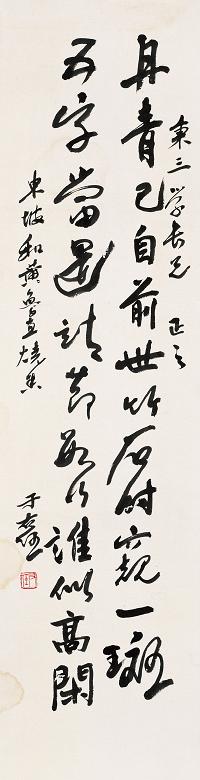 東三学長兄 正之
丹青已自前世竹石時窺一斑
五字當還靖節數行誰似高閑
東坡和黄魯直燒香
于右任